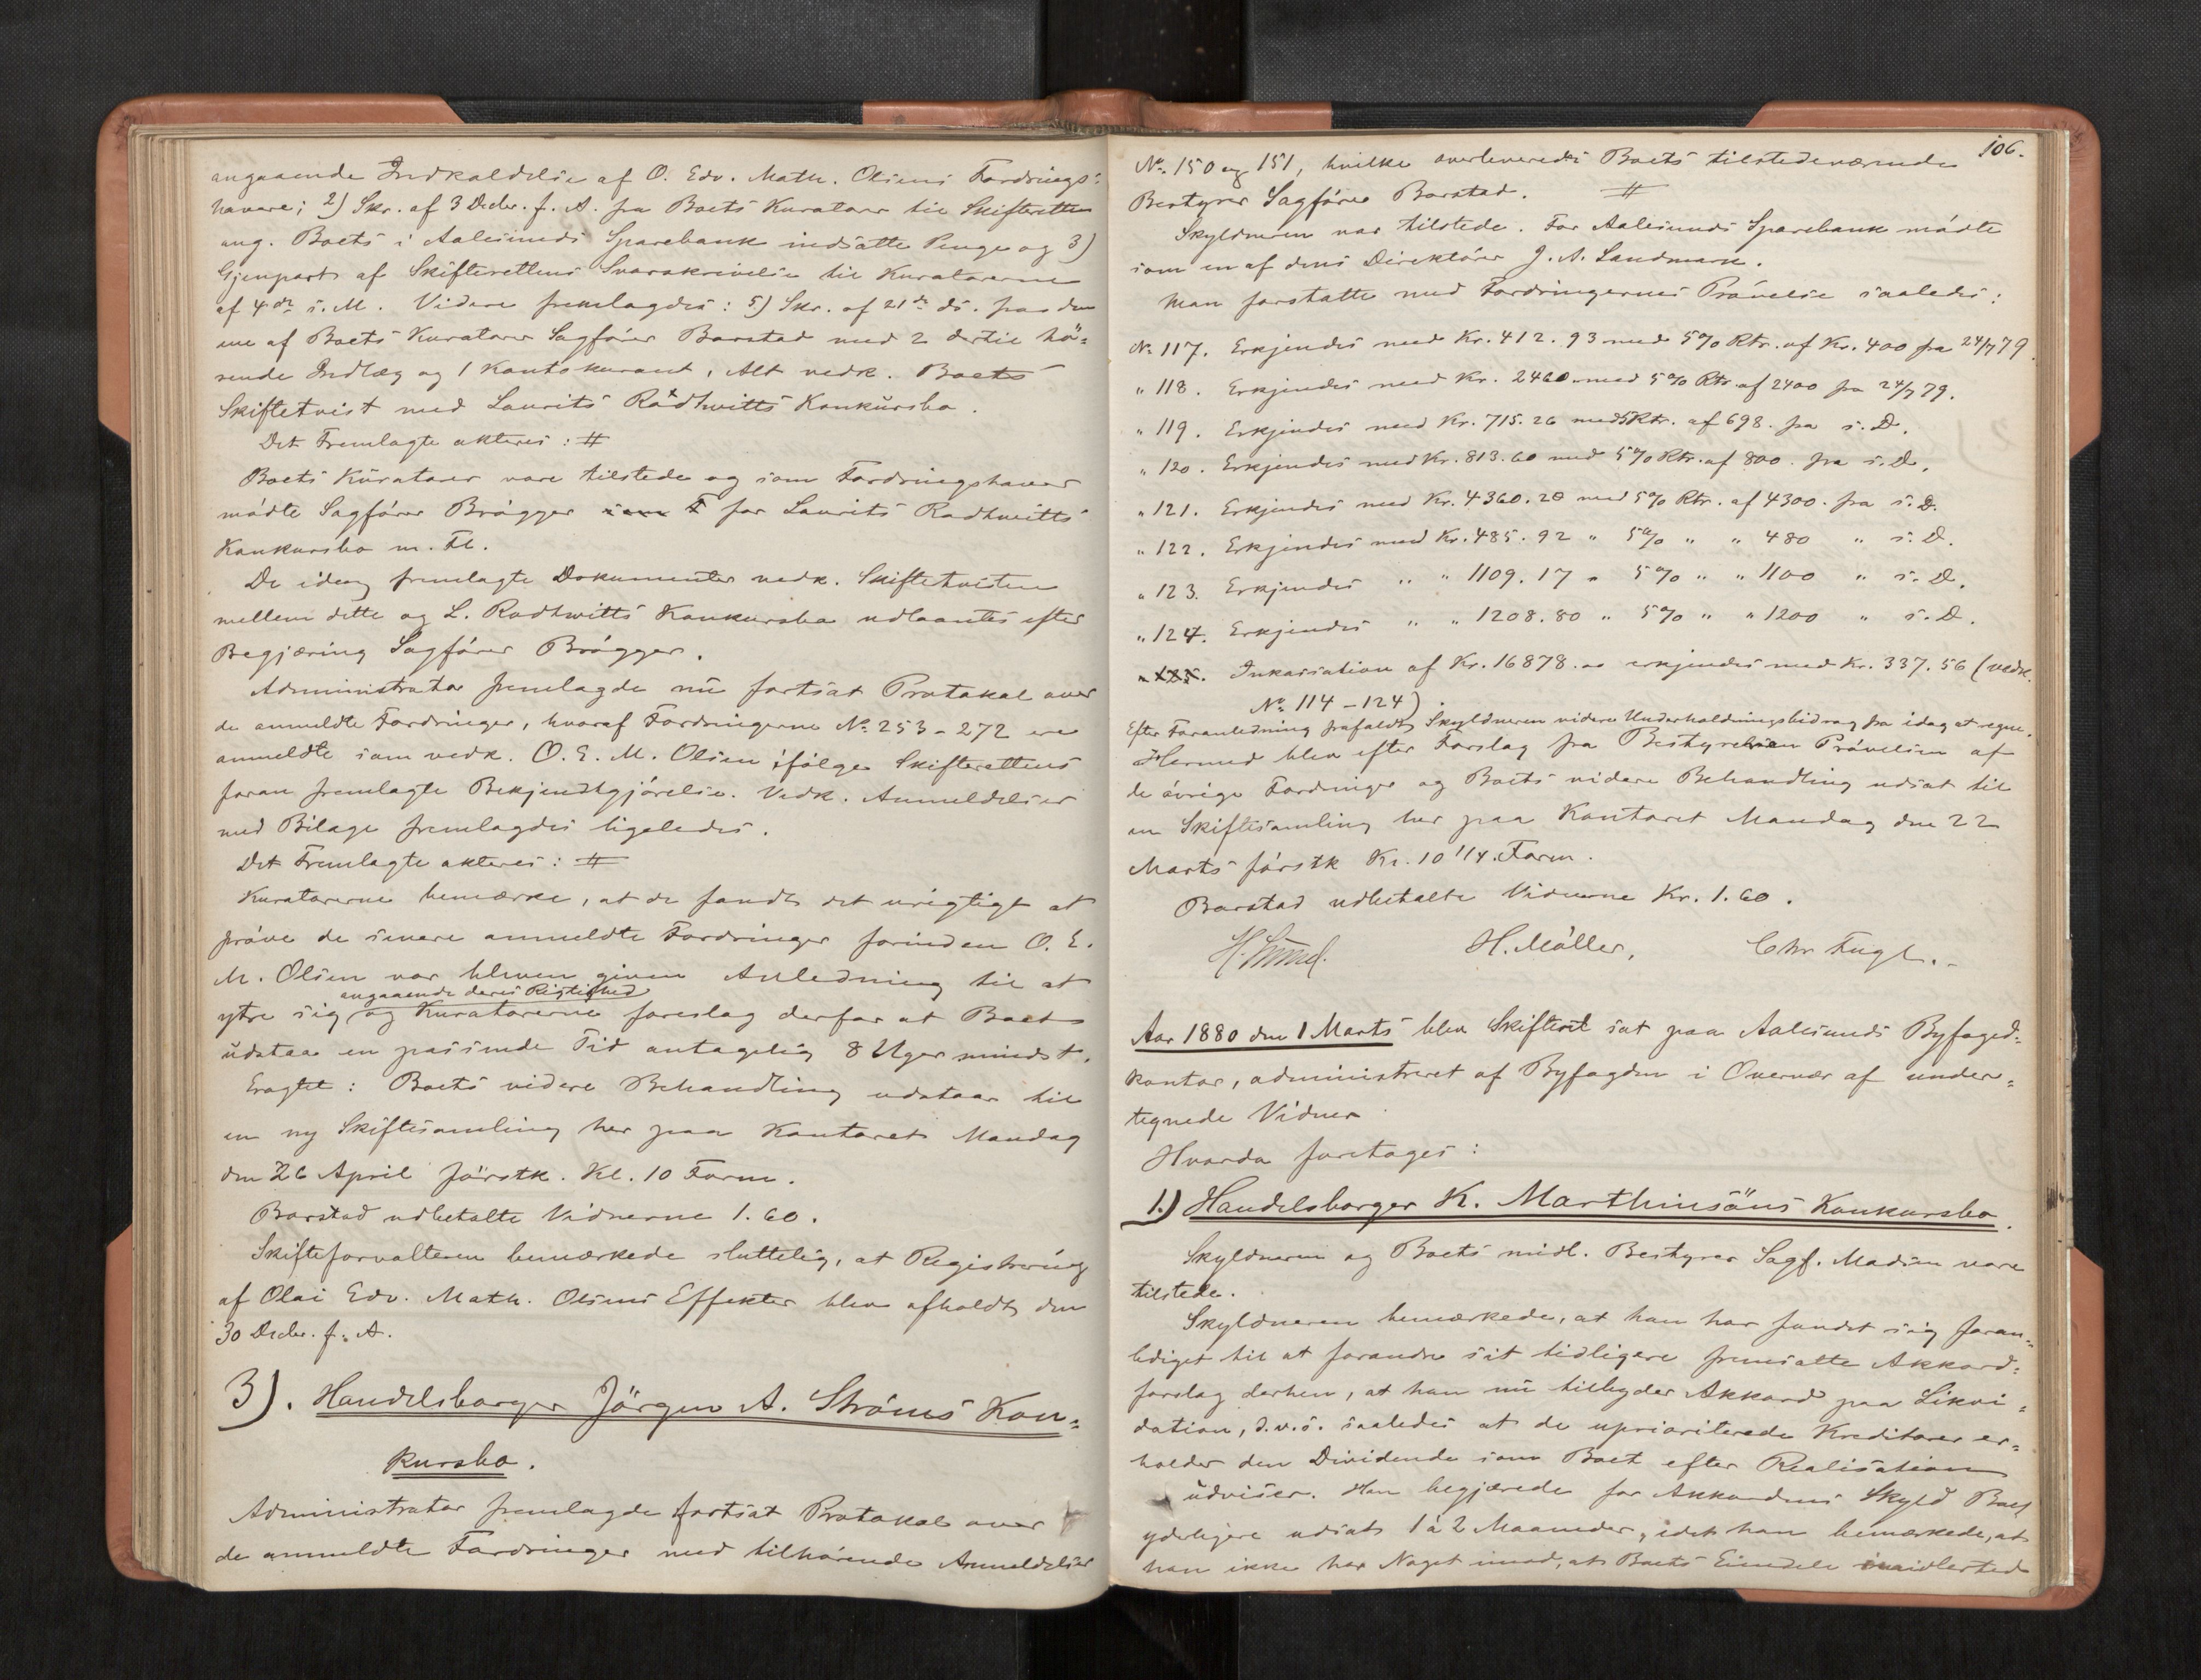 angaaende Indkaldelse af O. Edv. Math. Olsens Fordrings:
havere; 2) Skr. af 3 Decbr. f. A. fra Boets Kuratorer til Skifteretten
ang. Boets i Aalesunds Sparebank indsatte Penge og 3)
Gjenpart af Skifterettens Svarskrivelse til Kuratorerne
af 4de s. M. Videre fremlagdes: 5) Skr. af 21de ds. fra den
ene af Boets Kuratorer Sagfører Barstad med 2 dertil hö=
rende Indlæg og 1 Kontokurant, Alt vedk. Boets
Skiftetvist med Laurits Rødtwitts Konkursbo.
Det Fremlagte akteres: #
Boets Kuratorer vare tilstede og som Fordringshaver
mødte Sagfører Brögger som F for Laurits Rodtwitts
Konkursbo m. Fl.
De idag fremlagte Dokumenter vedk. Skiftetvisten
mellem dette og L. Rodtwitts Konkursbo udlaantes efter
Begjæring Sagfører Brögger.
Administrator fremlagde nu fortsat Protokol over
de anmeldte Fordringer, hvoraf Fordringerne No 253-272 ere
anmeldte som vedk. O. E. M. Olsen ifølge Skifterettens
foran fremlagte Bekjendtgjørelse. Vedk. Anmeldelser
med Bilage fremlagdes ligeledes.
Det Fremlagte akteres: #
Kuratorerne bemærke, at de fandt det urigtigt at
prøve de senere anmeldte Fordringer forinden O. E.
M. Olsen var bleven given Anledning til at
angaaende deres Rigtighed
ytre sig og Kuratorerne foreslog derfor at Boet
udstaar en passende Tid antagelig 8 Uger mindst.
Eragtet: Boets videre Behandling udstaar til
en ny Skiftesamling her paa Kontoret Mandag
den 26 April førstk. Kl. 10 Form.
Barstad udbetalte Vidnerne 1.60.
Skifteforvalteren bemærkede sluttelig, at Registrering
af Olai Edv. Math. Olsens Effekter blev afholdt den
30 Decbr. f. A.
3). Handelsborger Jörgen A. Ströms Kon=
kursbo.
Administrator fremlagde fortsat Protokol over
de anmeldte Fordringer med tilhørende Anmeldelser
106.
No. 150 og 151, hvilke overleveredes Boets tilstedeværende
Bestyrer Sagfører Barstad. #
Skyldneren var tilstede. For Aalesunds Sparebank mødte
som en af dens Direktører J. A. Landmark.
Man fortsatte med Fordringernes Prøvelse saaledes:
No 117. Erkjendes med Kr. 412.93 med 5% Rtr. af Kr. 400 fra 24/7 79.
" 118. Erkjendes med Kr. 2460 med 5% Rtr. af 2400 fra 24/7 79.
" 119. Erkjendes med Kr. 715.26 med 5 Rtr. af 698. fra s. D.
" 120. Erkjendes med Kr. 813.60 med 5% Rtr. af 800. fra s. D.
" 121. Erkjendes med Kr. 4360.20 med 5% Rtr. af 4300. fra s. D.
" 122. Erkjendes med Kr. 485.92 " 5% " " 480 " s. D.
" 123. Erkjendes " " 1109.17 " 5% " " 1100 " s. D.
" 124. Erkjendes " " 1208.80 " 5% " " 1200 " s. D.
" 125. Inkassation af Kr. 16878.00 erkjendes med Kr. 337.56 (vedk.
No 114-124).
Efter Foranledning frafaldt Skyldneren videre Underholdningsbidrag fra idag at regne.
Hermed blev efter Forslag fra Bestyrelsen Prøvelsen af
de øvrige Fordringer og Boets videre Behandling udsat til
en Skiftesamling her paa Kontoret Mandag den 22
Marts førstk Kl. 10 1/4 Form.
Barstad udbetalte Vidnerne Kr. 1.60.
H. Møller, Chr Fugl.-
Aar 1880 den 1 Marts blev Skifteret sat paa Aalesunds Byfoged=
kontor, administreret af Byfogden i Overvær af under=
tegnede Vidner
Hvorda foretages:
1.) Handelsborger K. Marthinsöns Konkursbo.
Skyldneren og Boets midl. Bestyrer Sagf. Madsen vare
tilstede.
Skyldneren bemærkede, at han har fundet sig foran=
lediget til at forandre sit tidligere fremsatte Akkord=
forslag derhen, at han nu tilbyder Akkord paa Likvi=
dation, d.v.s. saaledes at de uprioriterede Kreditorer er=
holder den Dividende som Boet efter Realisation
udviser. Han begjærede for Akkordens Skyld Boet
yderligere udsat 1 à 2 Maaneder, idet han bemærkede, at
han ikke har Noget imod, at Boets Eiendele imidlertid